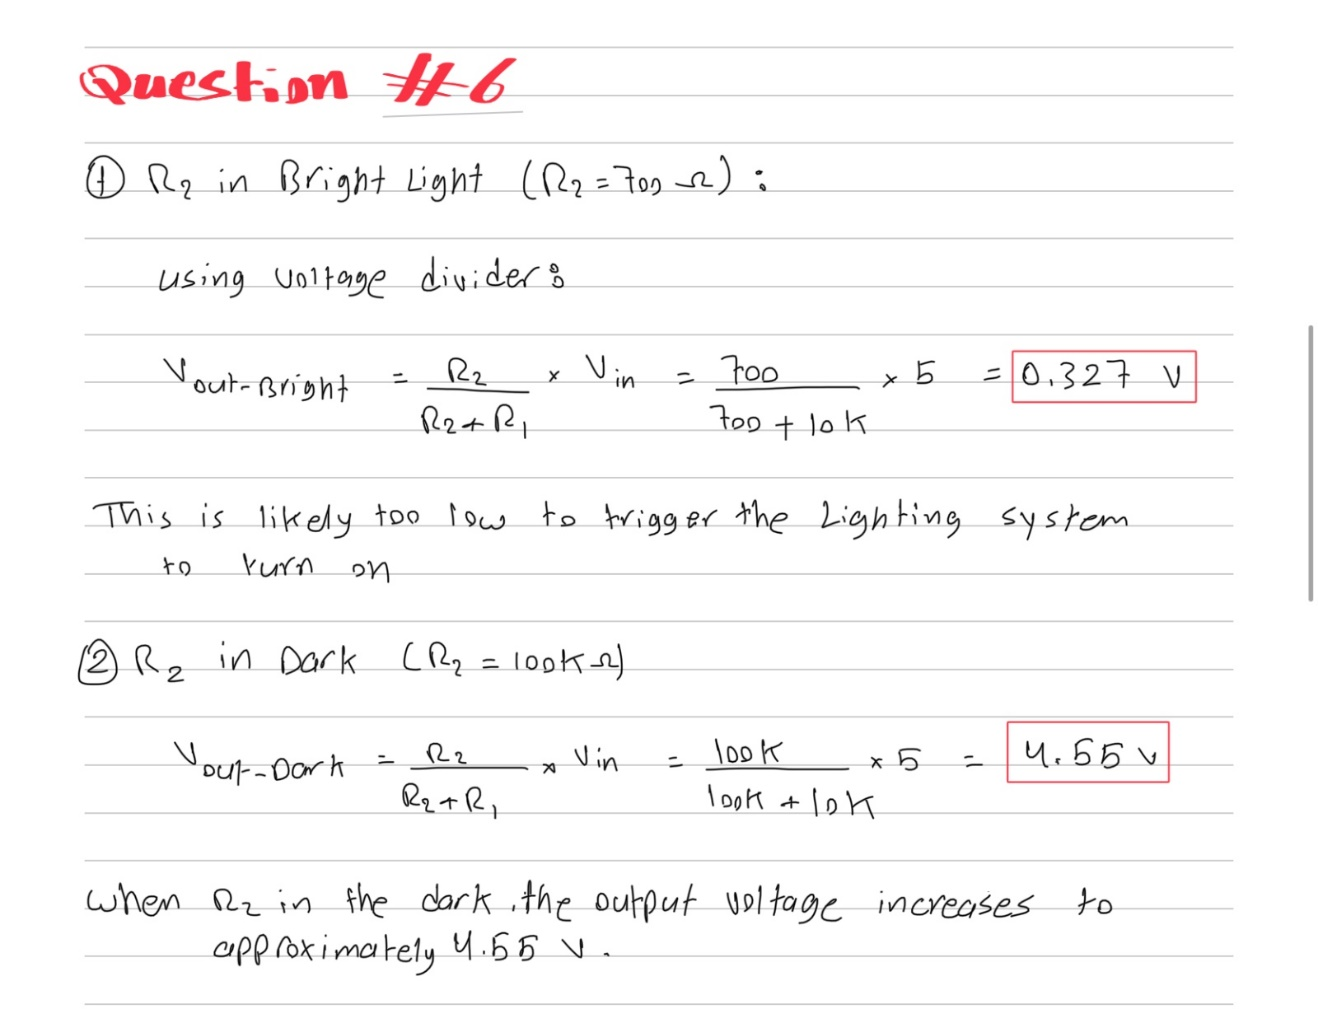 Question #6
① R2 in Bright Light (R2 = 700 Ω) :
using voltage divider:
Vout-Bright = R2 / (R2 + R1) × Vin = 700 / (700 + 10K) × 5 = 0.327 V
This is likely too low to trigger the Lighting system
to turn on
② R2 in Dark (R2 = 100K Ω)
Vout-Dark = R2 / (R2 + R1) × Vin = 100K / (100K + 10K) × 5 = 4.55 V
when R2 in the dark, the output voltage increases to
approximately 4.55 V.